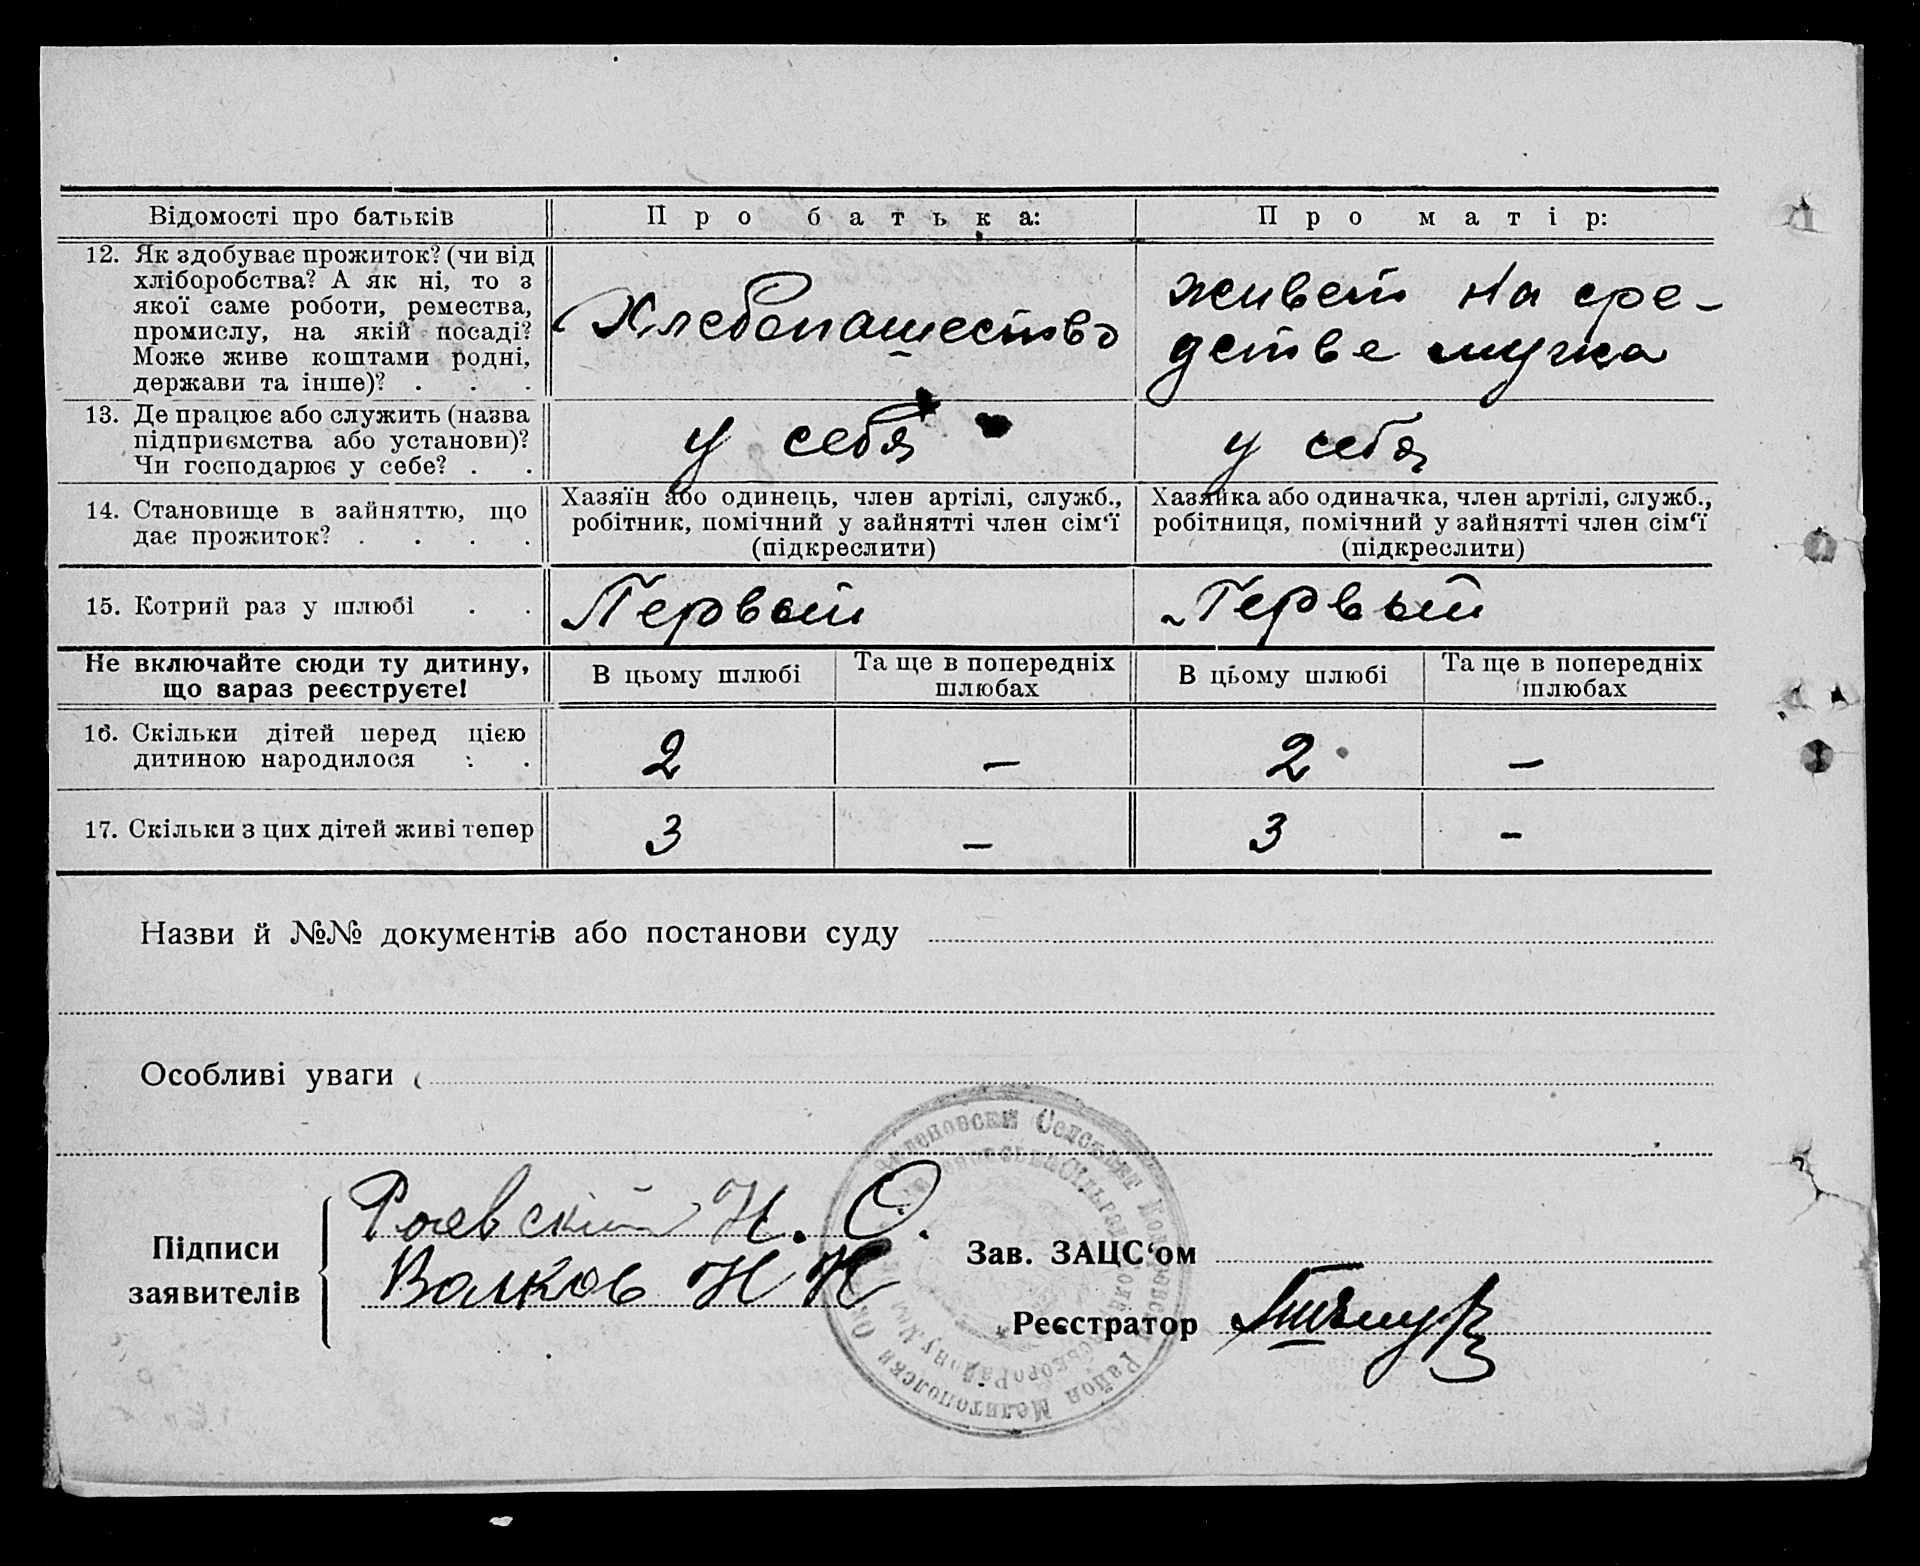 Відомості про батьків
Про батька:
Про матір:
12. Як здобуває прожиток? (чи від
хліборобства? А як ні, то з
якої саме роботи, ремества,
промислу, на якій посаді?
Може живе коштами родні,
держави та інше)? . . .
Хлебопашество
живет на сре-
дстве мужа
13. Де працює або служить (назва
підприємства або установи)?
Чи господарює у себе? . .
у себя
у себя
14. Становище в зайняттю, що
дає прожиток? . . . .
Хазяїн або одинець, член артілі, служб.,
робітник, помічний у зайнятті член сім‘ї
(підкреслити)
Хазяйка або одиначка, член артілі, служб.,
робітниця, помічний у зайнятті член сім‘ї
(підкреслити)
15. Котрий раз у шлюбі . .
Первый
Первый
Не включайте сюди ту дитину,
що вараз реєструєте!
В цьому шлюбі
Та ще в попередніх
шлюбах
В цьому шлюбі
Та ще в попередніх
шлюбах
16. Скільки дітей перед цією
дитиною народилося . .
2
—
2
—
17. Скільки з цих дітей живі тепер
3
—
3
-
Назви й №№ документів або постанови суду
Особливі уваги
Підписи
заявителів
Роевский Н. О.
Волков Н Н
Зав. ЗАЦС‘ом
Реєстратор
Сельсовет
Район Мелитопольски Ок